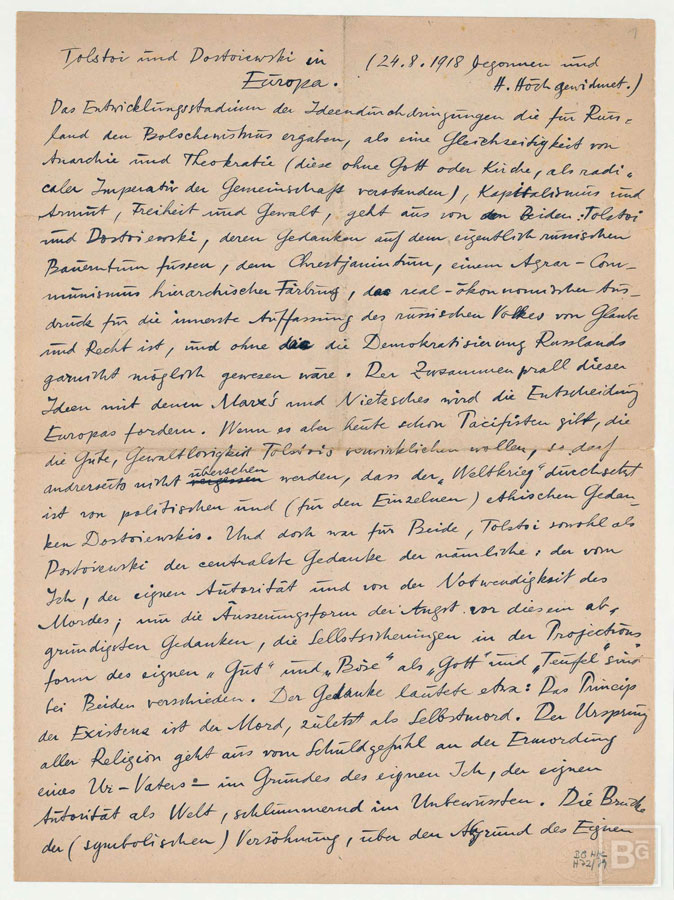 1
Tolstoi und Dostoiewski in (24.8.1918 begonnen und
Europa. H. Höch gewidmet.)
Das Entwicklungsstadium der Ideendurchdringungen die für Russ-
land den Bolschewismus ergaben, als eine Gleichzeitigkeit von
Anarchie und Theokratie (diese ohne Gott oder Kirche, als radi-
caler Imperativ der Gemeinschaft verstanden), Kapitalismus und
Armut, Freiheit und Gewalt, geht aus von den Beiden: Tolstoi
und Dostoiewski, deren Gedanken auf dem eigentlich russischen
Bauerntum fussen, dem Chrestjanintum, einem Agrar-Com-
munismus hierarchischer Färbung, der real-ökonomischer Aus-
druck für die innerste Auffassung des russischen Volkes von Glaube
und Recht ist, und ohne die die Demokratisierung Russlands
garnicht möglich gewesen wäre. Der Zusammenprall dieser
Ideen mit denen Marx's und Nietzsches wird die Entscheidung
Europas fordern. Wenn es aber heute schon Pacifisten gibt, die
die Güte, Gewaltlosigkeit Tolstois verwirklichen wollen, so darf
andrerseits nicht vergessen übersehen werden, dass der „Weltkrieg" durchsetzt
ist von politischen und (für den Einzelnen) ethischen Gedan-
ken Dostoiewskis. Und doch war für Beide, Tolstoi sowohl als
Dostoiewski der centralste Gedanke der nämliche: der vom
Ich, der eignen Autorität und von der Notwendigkeit des
Mordes; nur die Äusserungsform der Angst vor diesem ab-
gründigsten Gedanken, die Selbstsicherungen in der Projections
form des eignen „Gut" und „Böse" als „Gott" und „Teufel" sind
bei Beiden verschieden. Der Gedanke lautete etwa: Das Princip
der Existenz ist der Mord, zuletzt als Selbstmord. Der Ursprung
aller Religion geht aus vom Schuldgefühl an der Ermordung
eines Ur-Vaters – im Grundes des eignen Ich, der eignen
Autorität als Welt, schlummernd im Unbewussten. Die Brücke
der (symbolischen) Versöhnung, über den Abgrund des Eignen
BG